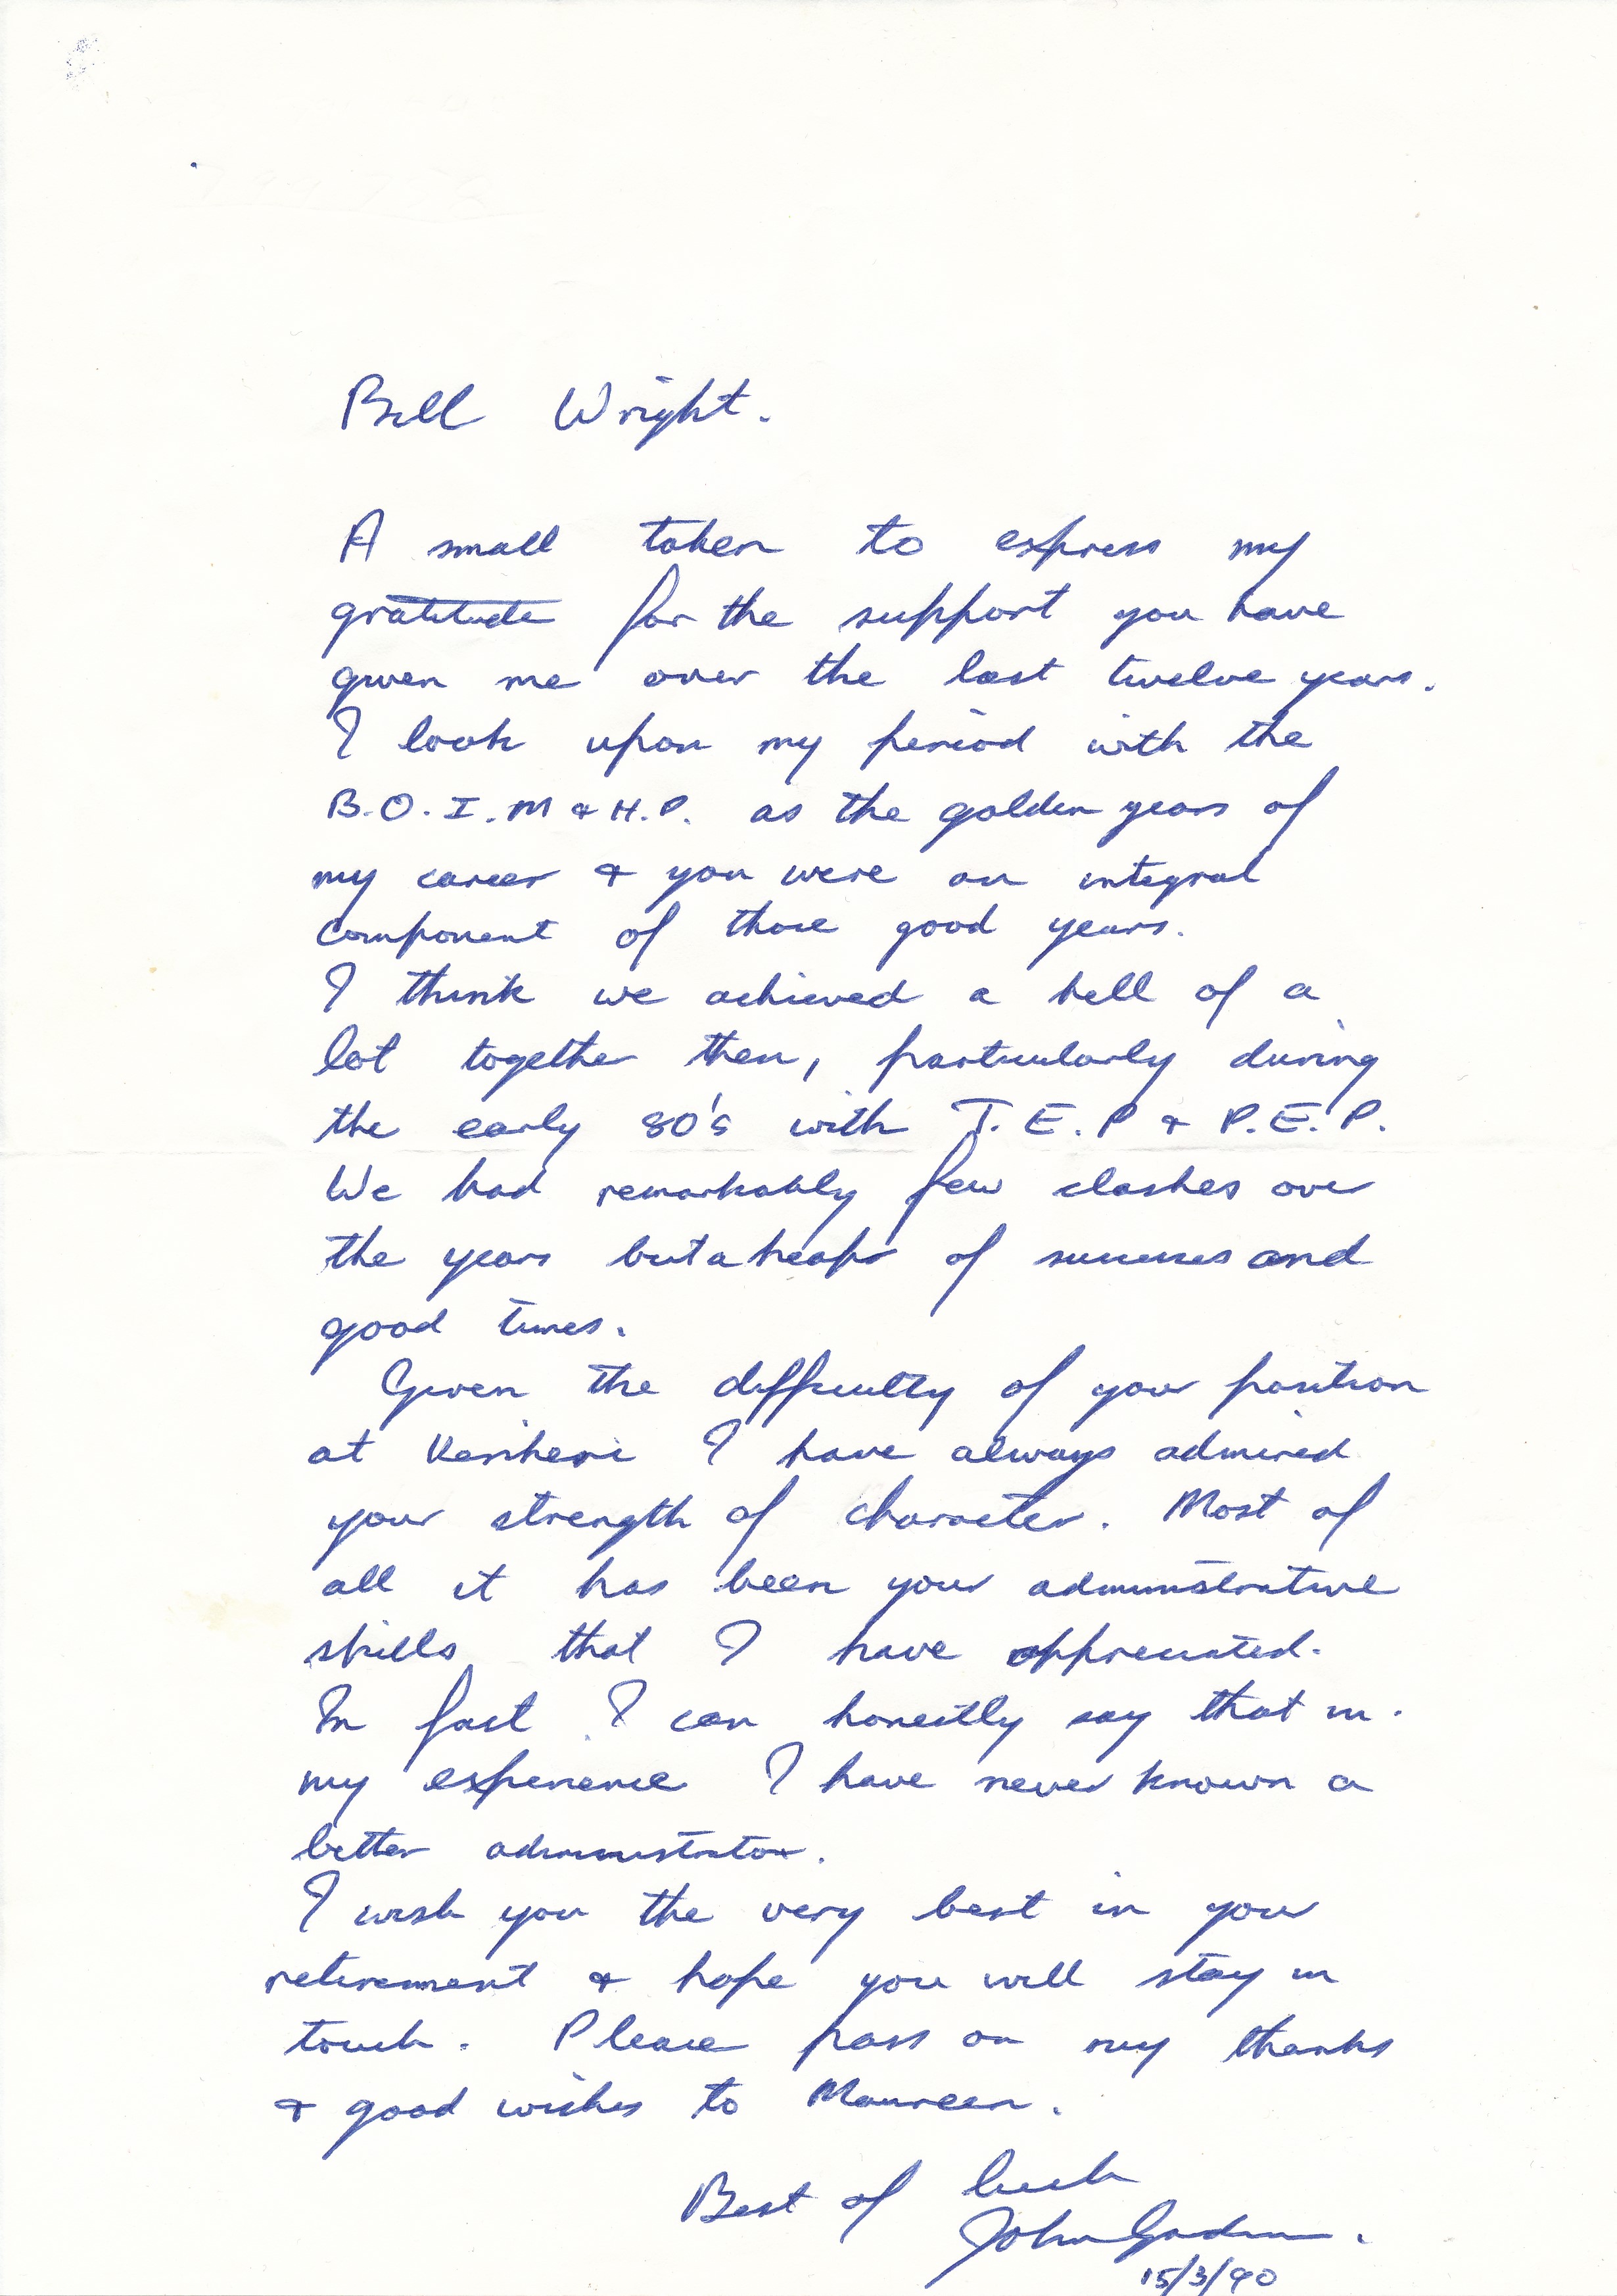 Bill Wright.
A small token to express my
gratitude for the support you have
given me over the last twelve years.
I look upon my period with the
B.O.I.M & H.P. as the golden years of
my career & you were an integral
component of those good years.
I think we achieved a hell of a
lot together then, particularly during
the early 80's with T.E.P & P.E.P.
We had remarkably few clashes over
the years but a heap of successes and
good times.
Given the difficulty of your position
at I have always admired
your strength of character. Most of
all it has been your administrative
skills that I have appreciated.
In fact I can honestly say that in
my experience I have never known a
better administrator.
I wish you the very best in your
retirement & hope you will stay in
touch. Please pass on my thanks
& good wishes to Maureen.
Best of luck
John
15/3/90